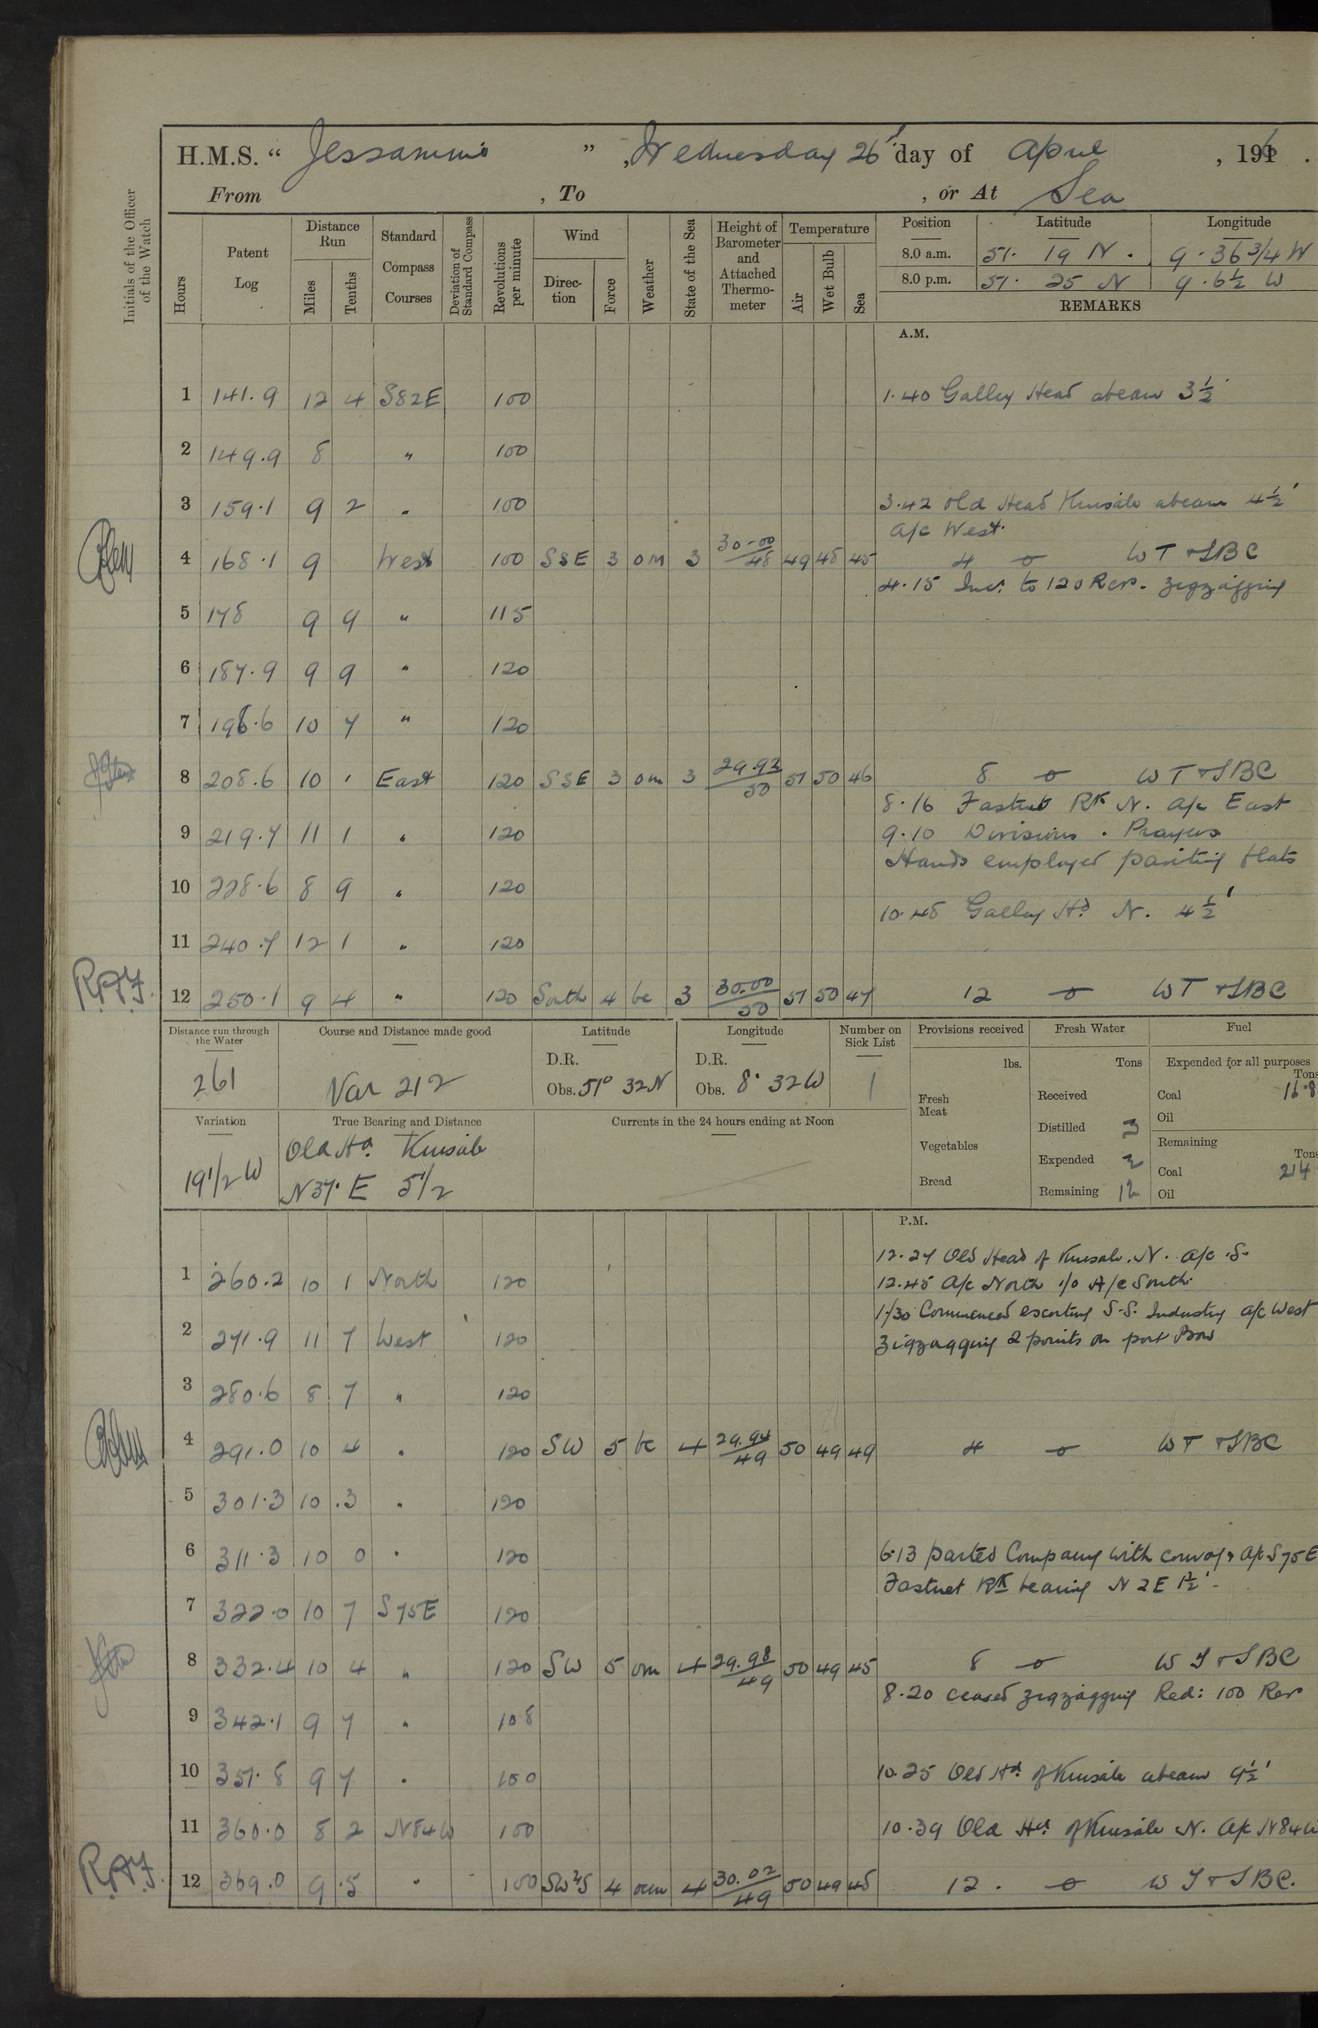 H.M.S. “ Jessamine ” , Wednesday 26' day of April , 1916 .
From , To , or At Sea
Initials of the Officer of the Watch
Hours Patent Log Distance Run Miles Tenths Standard Compass Courses Deviation of Standard Compass Revolutions per minute Wind Direction Force Weather State of the Sea Height of Barometer and Attached Thermometer Temperature Air Wet Bulb Sea Position Latitude Longitude
8.0 a.m. 51. 19 N . 9. 36 3/4 W
8.0 p.m. 51. 25 N 9. 6 1/2 W
REMARKS
A.M.
1 141.9 12 4 S82E 100 1.40 Galley Head abeam 3 1/2'
2 149.9 8 " 100
3 159.1 9 2 " 100 3.42 Old Head Kinsale abeam 4 1/2'
a/c West.
4 168.1 9 West 100 SSE 3 om 3 30.00/48 49 48 45 4 o WT & SBC
4.15 Inc: to 120 Rev. zigzagging
5 178 9 9 " 115
6 187.9 9 9 " 120
7 198.6 10 7 " 120
8 208.6 10 ' East 120 SSE 3 om 3 29.92/50 51 50 46 8 o WT & SBC
8.16 Fastnet Rk N. a/c East
9 219.7 11 1 " 120 9.10 Divisions . Prayers
Hands employed painting flats
10 228.6 8 9 " 120
10.48 Galley Hd N. 4 1/2'
11 240.7 12 1 " 120
R.A.F. 12 250.1 9 4 " 120 South 4 bc 3 30.00/50 51 50 47 12 o WT & SBC
Distance run through the Water Course and Distance made good Latitude Longitude Number on Sick List Provisions received Fresh Water Fuel
261 Var 212 D.R. Obs. 51° 32 N D.R. Obs. 8° 32 W 1
lbs. Tons Expended for all purposes Tons
Fresh Meat Received Coal 16.8
Distilled 3 Oil
Vegetables Expended 2 Remaining Tons
Bread Remaining 12 Coal 214
Oil
Variation True Bearing and Distance Currents in the 24 hours ending at Noon
19 1/2 W Old Hd. Kinsale
N37°E 5 1/2
P.M.
12.27 Old Head of Kinsale. N. a/c S.
1 260.2 10 1 North 120 12.45 a/c North 1/0 A/c South.
1/30 Commenced escorting S.S. Industry a/c West
2 271.9 11 7 West 120 zigzagging 2 points on port Bow
3 280.6 8 7 " 120
4 291.0 10 4 " 120 SW 5 bc 4 29.94/49 50 49 49 4 o WT & SBC
5 301.3 10 .3 " 120
6 311.3 10 0 " 120 6.13 parted Company with convoy, a/c S75E
Fastnet Rk bearing N2E 1 1/2'.
7 322.0 10 7 S75E 120
8 332.4 10 4 " 120 SW 5 om 4 29.98/49 50 49 45 8 o WT & SBC
8.20 ceased zigzagging Red: 100 Rev
9 342.1 9 7 " 108
10 351.8 9 7 " 100 10.25 Old Hd. of Kinsale abeam 9 1/2'
11 360.0 8 2 N84W 100 10.39 Old Hd. of Kinsale N. a/c N84W
R.A.F. 12 369.0 9 .5 " 100 4 4 30.02/49 50 49 48 12. o WT & SBC.